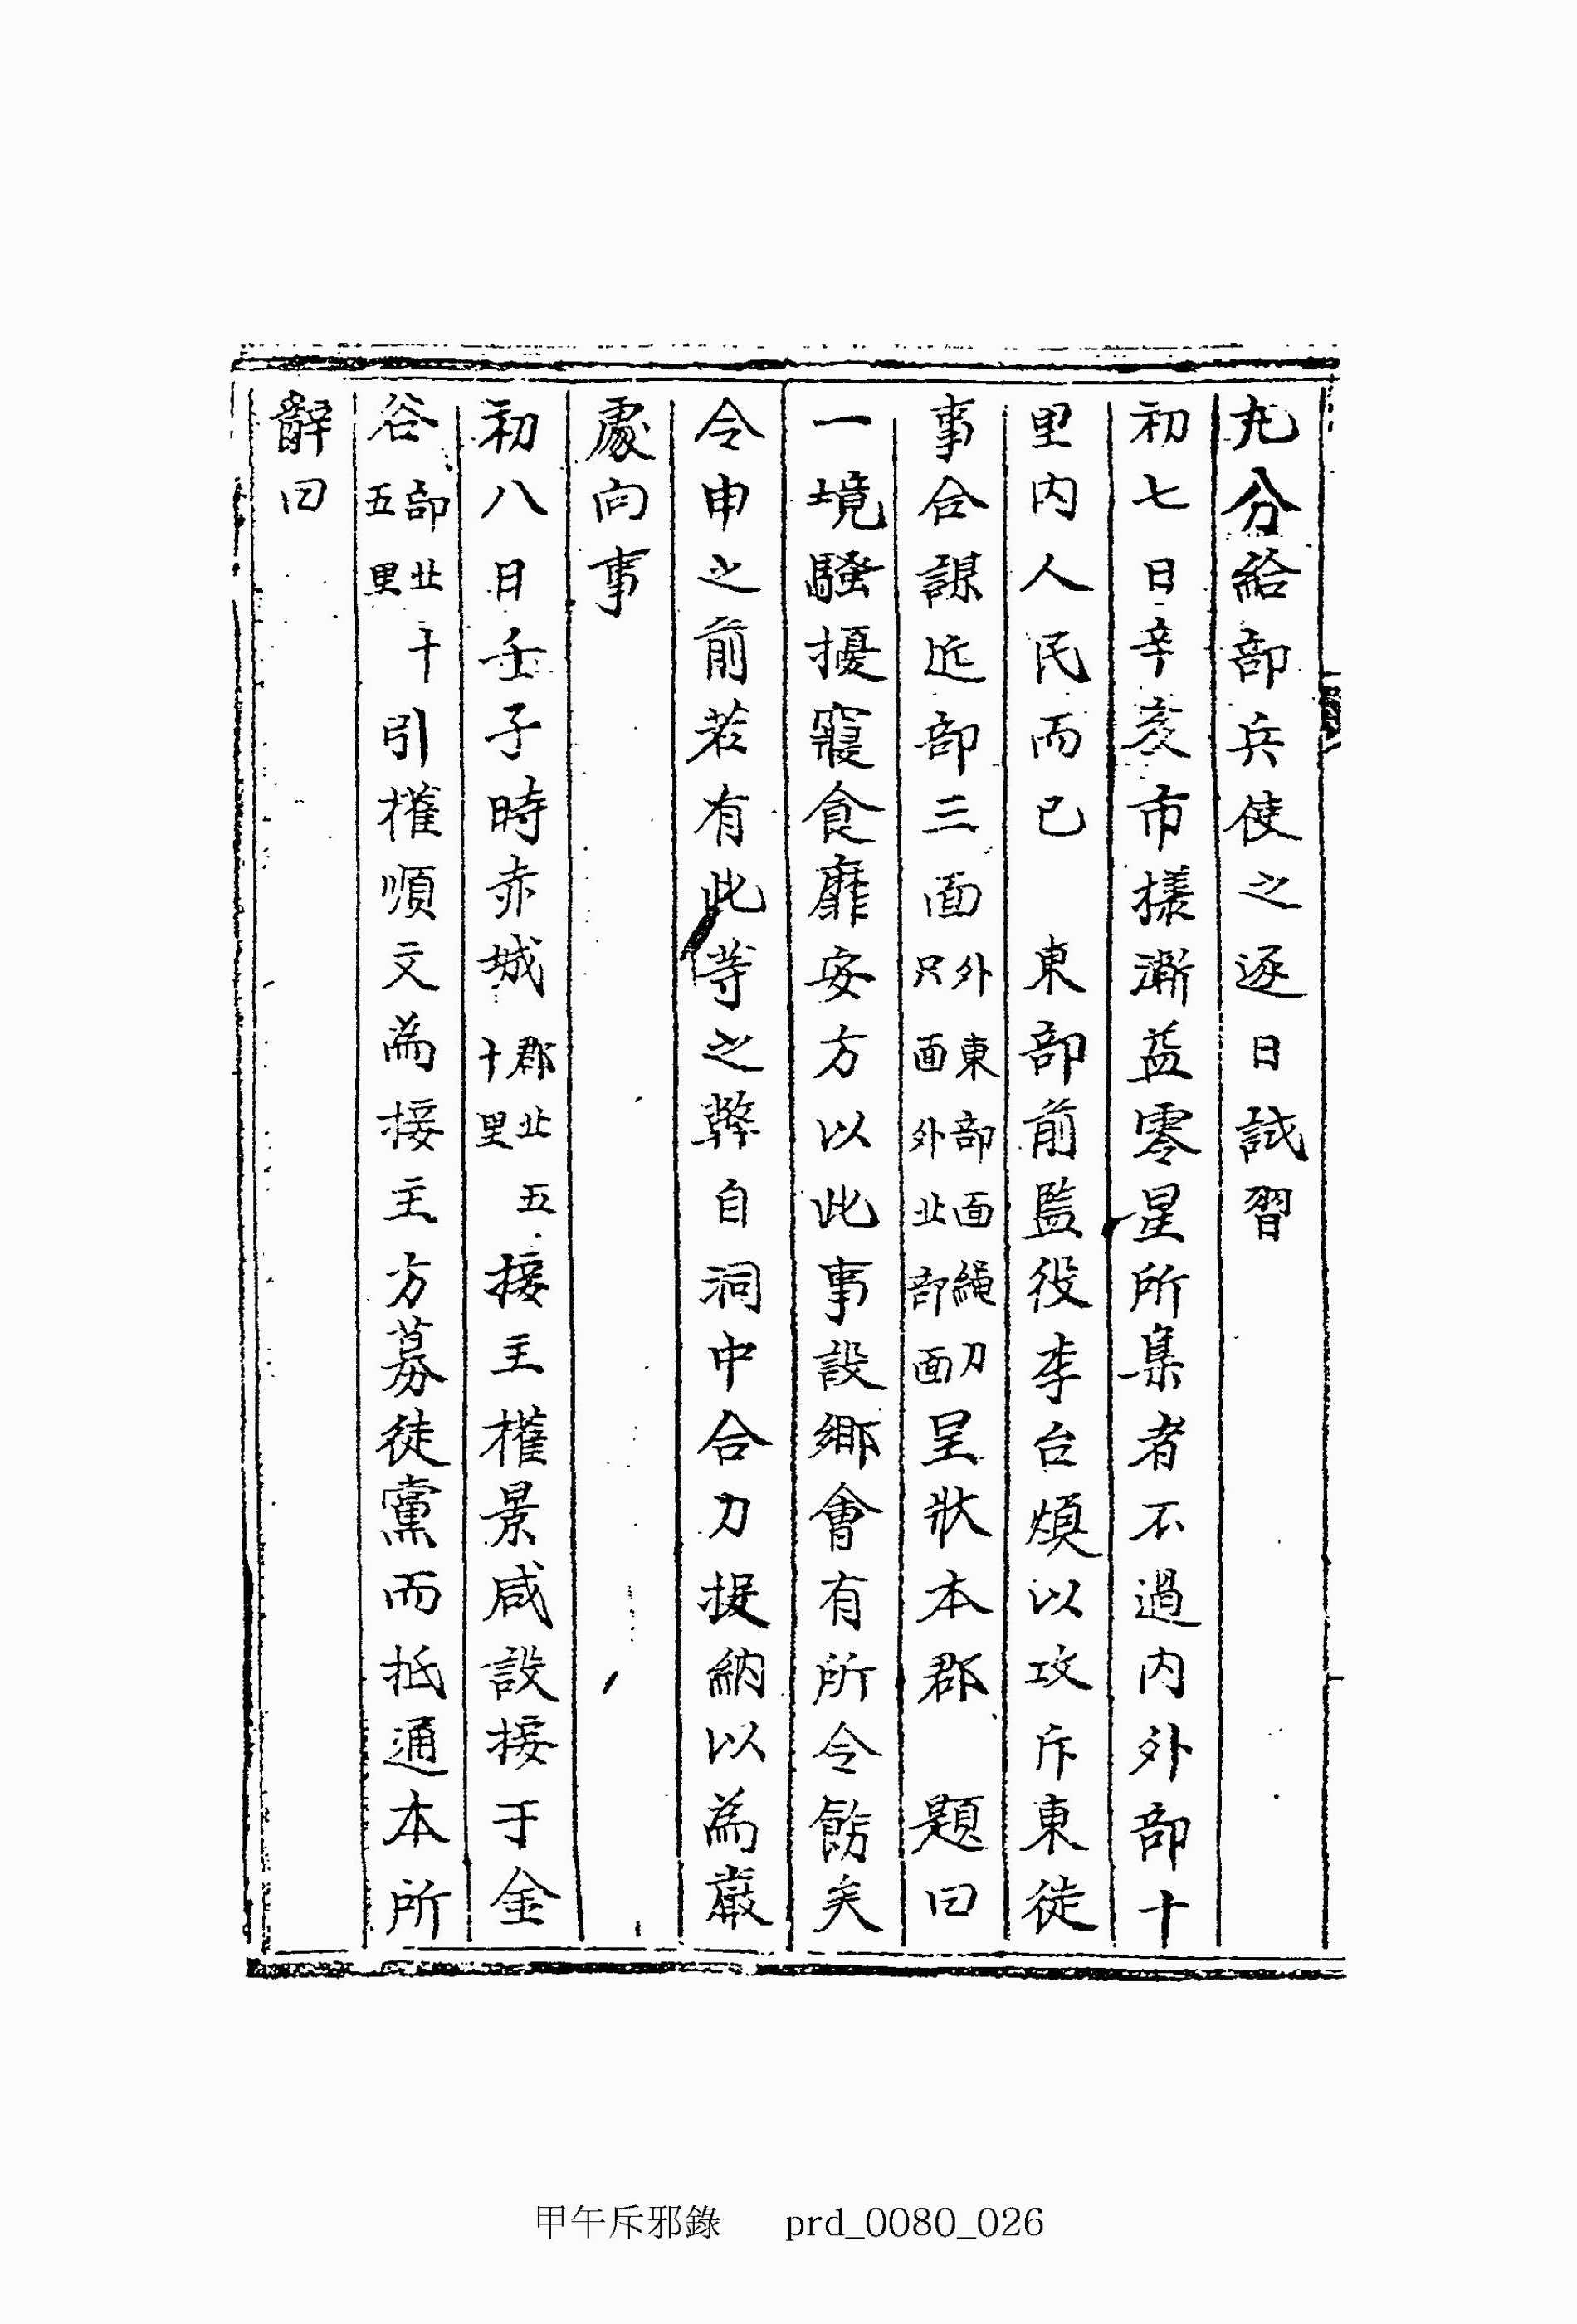 丸分給部兵使之逐日試習
初七日辛亥市樣漸益零星所集者不過內外部十
里內人民而已　東部前監役李台煩以攻斥東徒
事合謀近部三面外東部面繩刀只面外北部面呈狀本郡　題曰
一境騷擾寢食靡安方以此事設鄕會有所令飭矣
令申之前若有此等之弊自洞中合力捉納以為嚴
處向事
初八日壬子時赤城郡北五十里接主權景咸設接于金
谷部北十五里引權順文為接主方募徒黨而抵通本所
辭曰
甲午斥邪錄　prd_0080_026